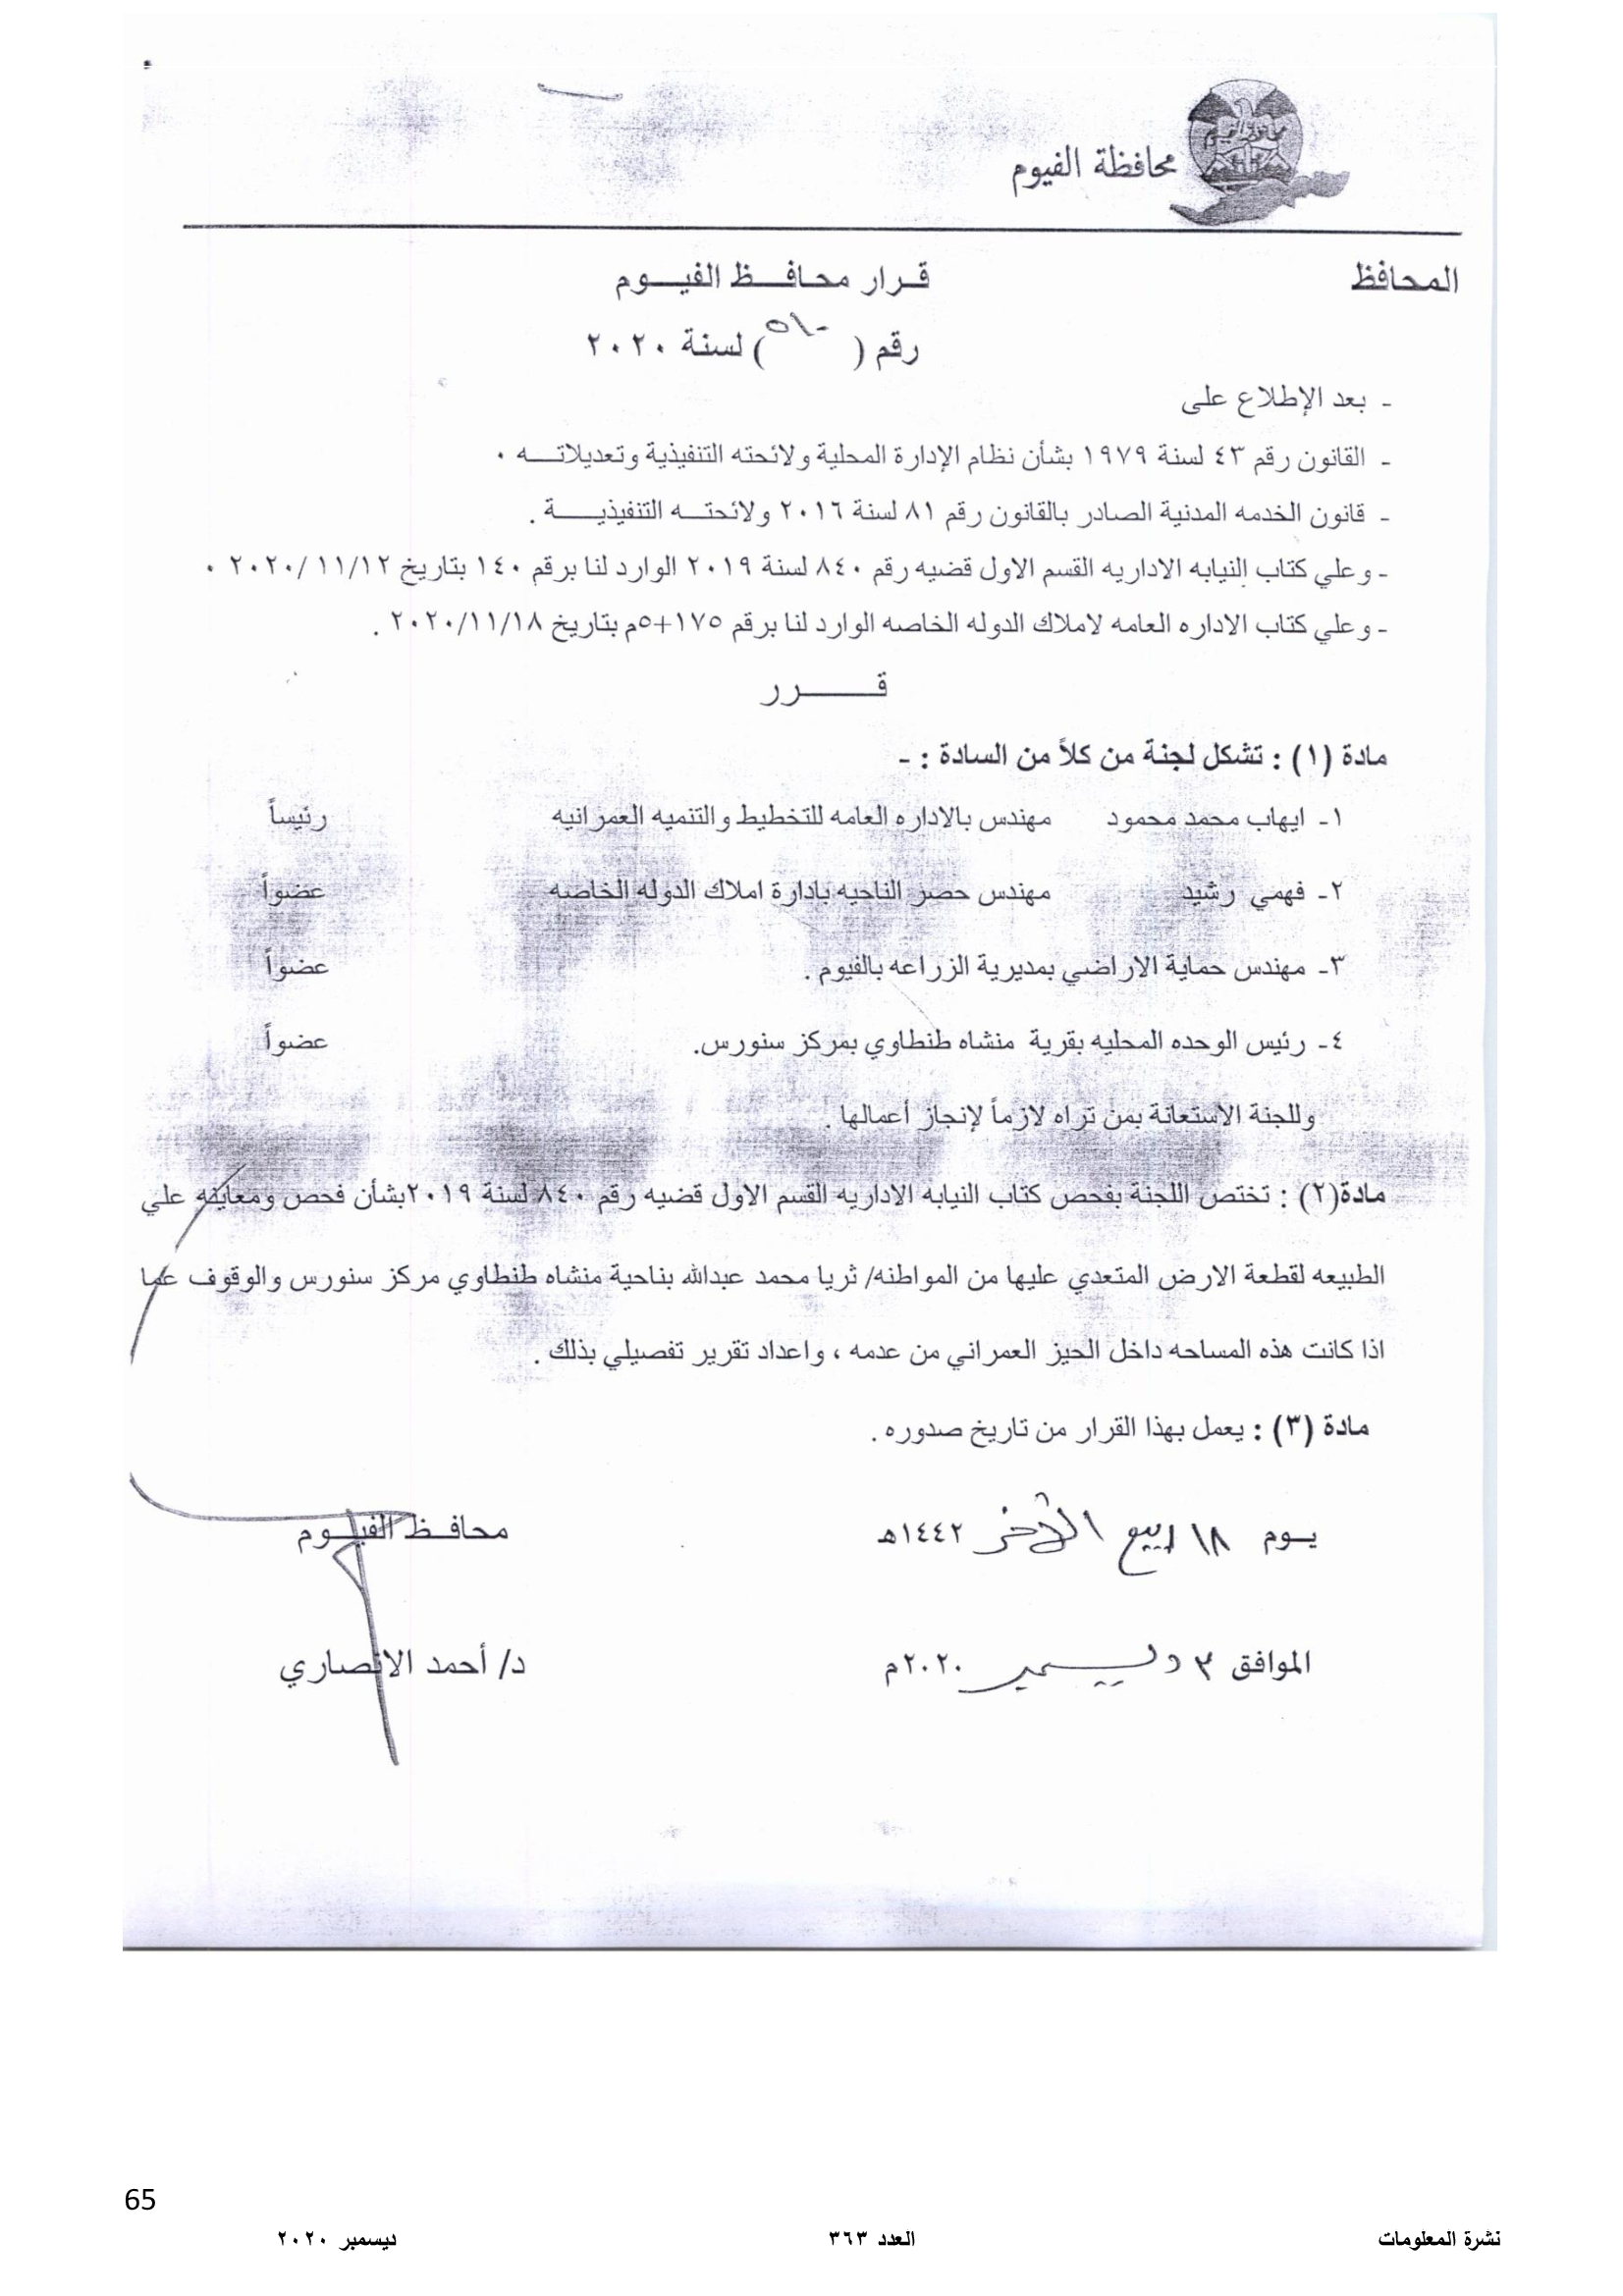 محافظة الفيوم
المحافظ
قـرار محـافـــظ الفيـــوم
رقم ( ٥١٠ ) لسنة ٢٠٢٠
- بعد الإطلاع على
- القانون رقم ٤٣ لسنة ١٩٧٩ بشأن نظام الإدارة المحلية ولائحته التنفيذية وتعديلاتـــه ٠
- قانون الخدمه المدنية الصادر بالقانون رقم ٨١ لسنة ٢٠١٦ ولائحتـــه التنفيذيـــــة .
- وعلي كتاب النيابه الاداريه القسم الاول قضيه رقم ٨٤٠ لسنة ٢٠١٩ الوارد لنا برقم ١٤٠ بتاريخ ١١/١٢/ ٢٠٢٠ ٠
- وعلي كتاب الاداره العامه لاملاك الدوله الخاصه الوارد لنا برقم ١٧٥+٥م بتاريخ ٢٠٢٠/١١/١٨ .
قـــــــرر
مادة (١) : تشكل لجنة من كلاً من السادة : -
١- ايهاب محمد محمود مهندس بالاداره العامه للتخطيط والتنميه العمرانيه رئيساً
٢- فهمي رشيد مهندس حصر الناحيه بادارة املاك الدوله الخاصه عضواً
٣- مهندس حماية الاراضي بمديرية الزراعه بالفيوم . عضواً
٤- رئيس الوحده المحليه بقرية منشاه طنطاوي بمركز سنورس. عضواً
وللجنة الاستعانة بمن تراه لازماً لإنجاز أعمالها .
مادة(٢) : تختص اللجنة بفحص كتاب النيابه الاداريه القسم الاول قضيه رقم ٨٤٠ لسنة ٢٠١٩بشأن فحص ومعاينه علي
الطبيعه لقطعة الارض المتعدي عليها من المواطنه/ ثريا محمد عبدالله بناحية منشاه طنطاوي مركز سنورس والوقوف عما
اذا كانت هذه المساحه داخل الحيز العمراني من عدمه ، واعداد تقرير تفصيلي بذلك .
مادة (٣) : يعمل بهذا القرار من تاريخ صدوره .
يـوم ١٨ ربيع الآخر ١٤٤٢هـ محافـظ الفيـوم
الموافق ٣ ديسمبر ٢٠٢٠م د/ أحمد الانصاري
65
نشرة المعلومات العدد ٣٦٣ ديسمبر ٢٠٢٠